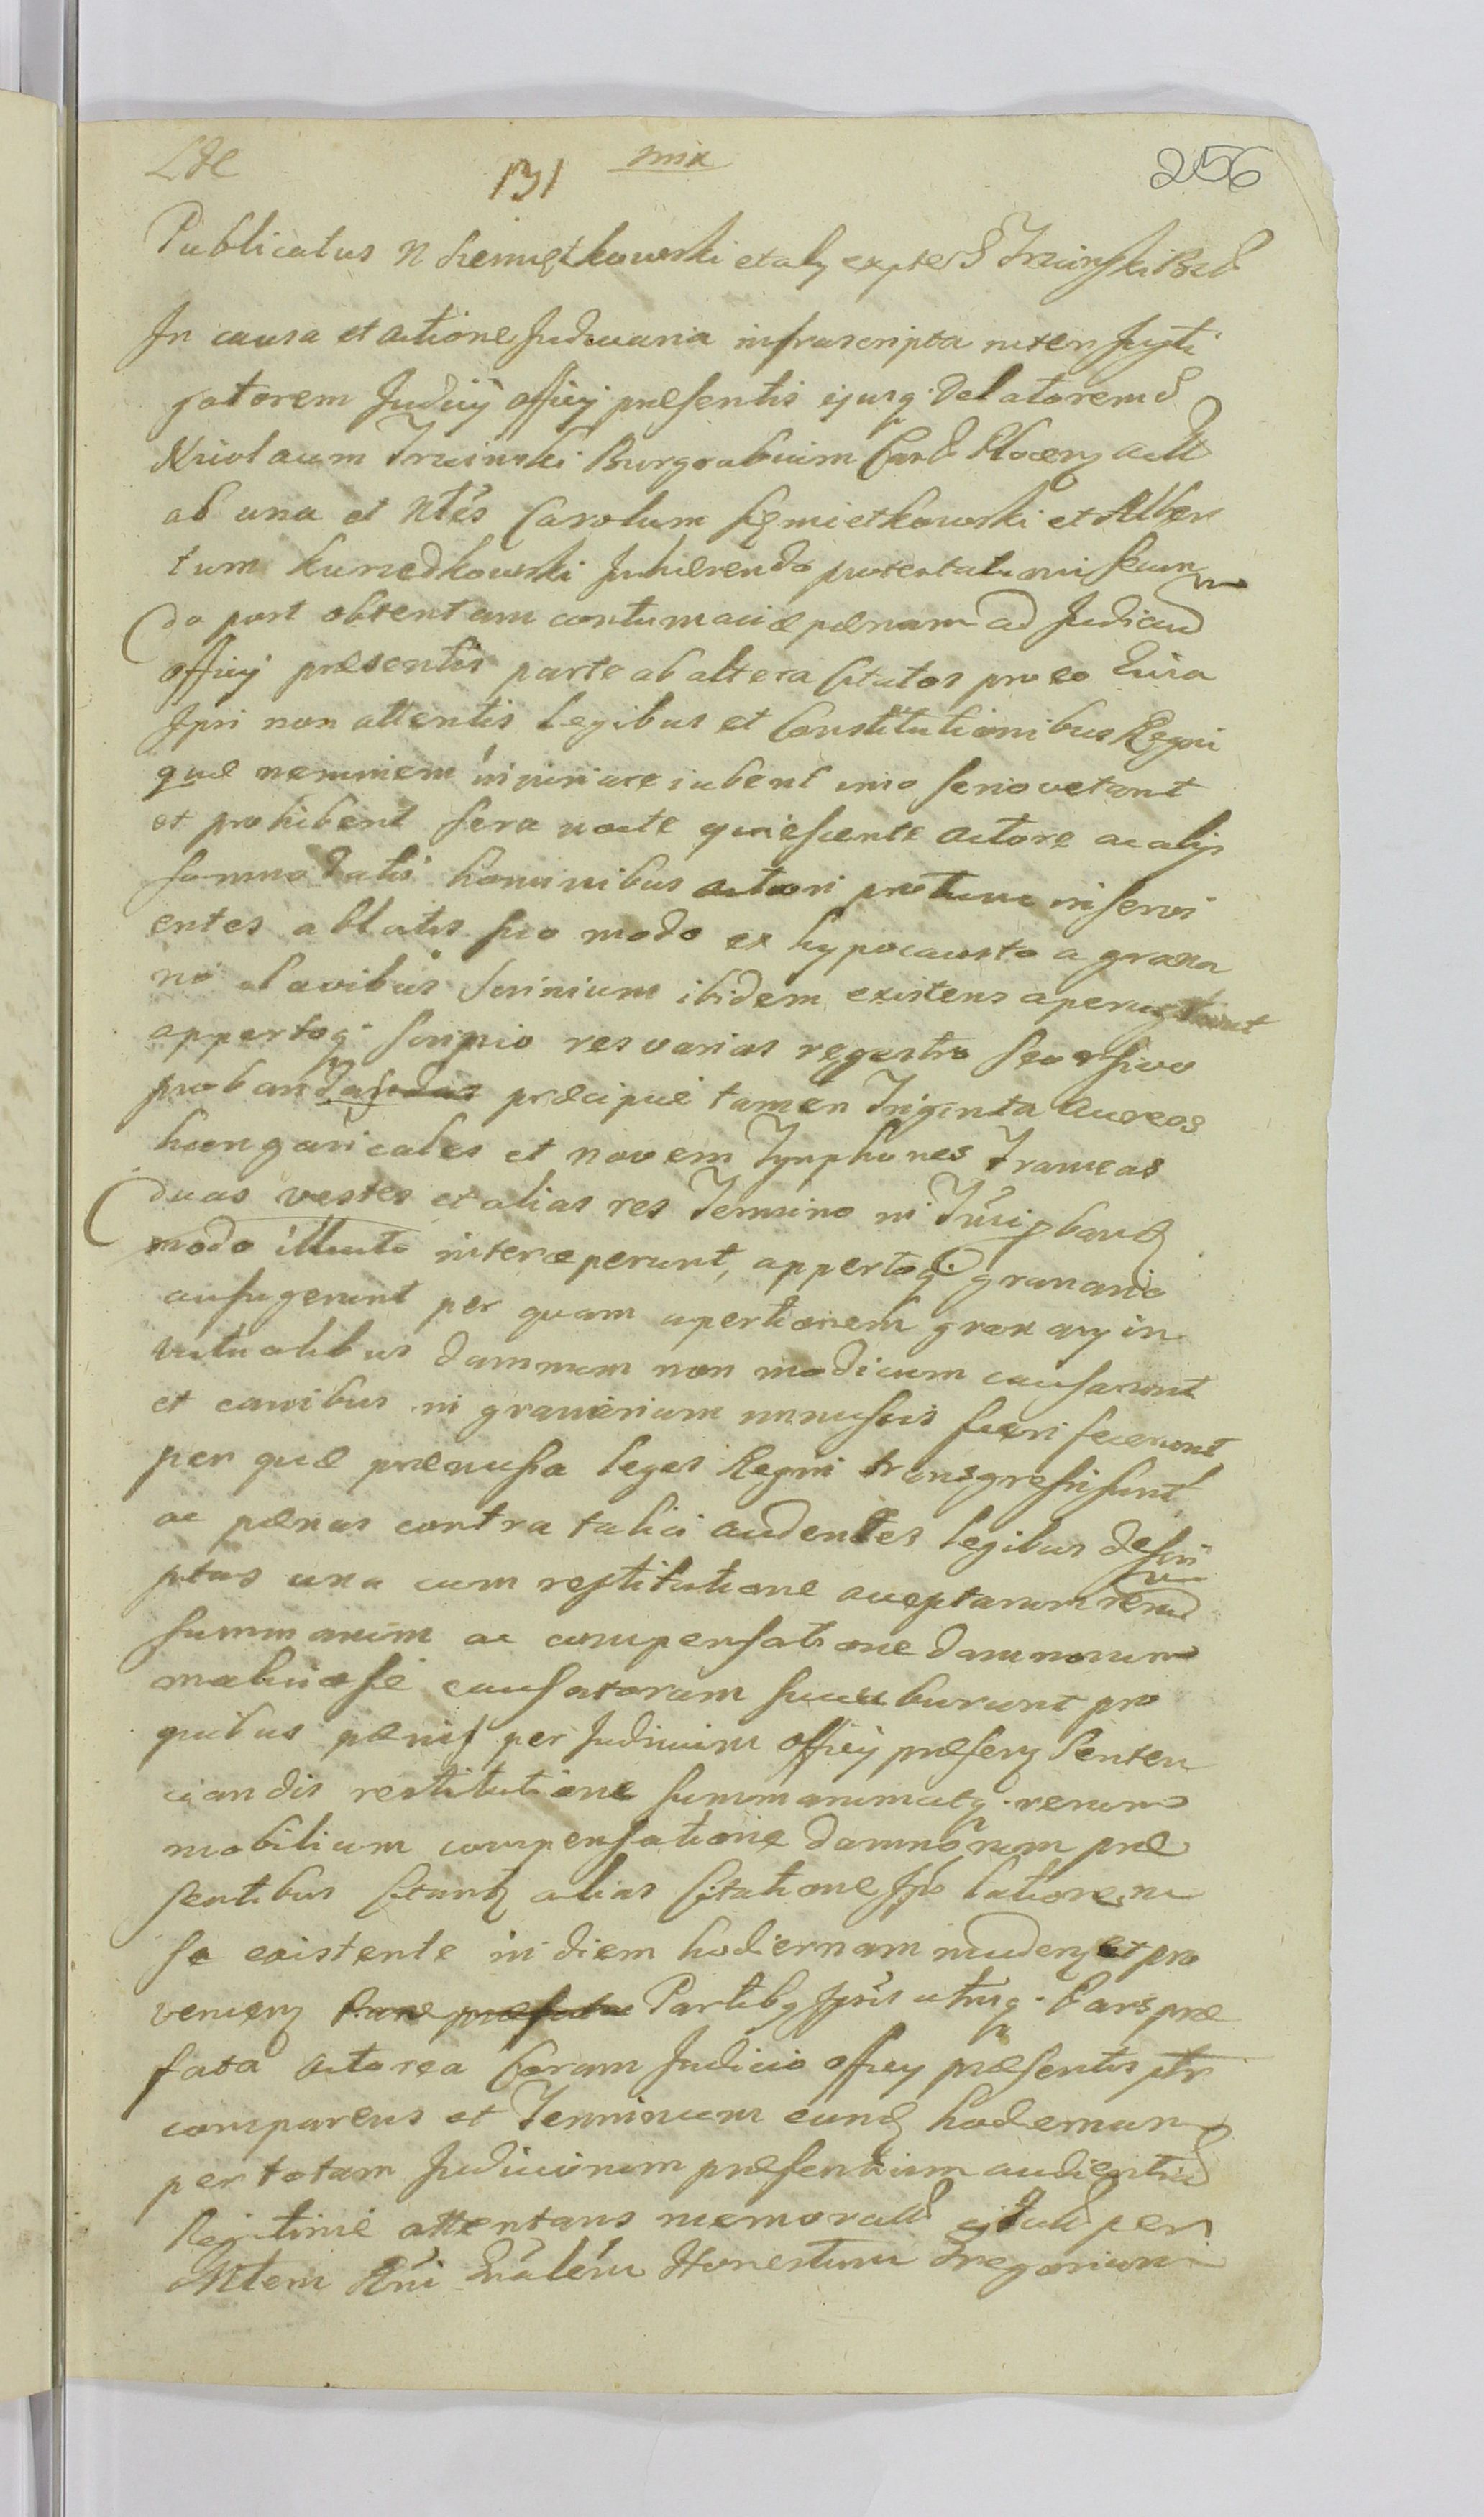 131 mix 256
Publicatus N Siemiętkowski et alÿ expte S Trzcinski Bur
In causa et actione Judiciaria infrascripta inter Insti
gatorem Judicÿ Officÿ præsentis ejusq. Delatorem
Nicolaum Trzcinski Burgrabium Act
ab una et Ntes Carolum Siemietkowski et Alber
tum Kunedkowski Inhærendo protestationi Secun
do post obtentam contumaciæ pænam ad Judicium
officÿ præsentis parte ab altera Citatos pro eo Quia
Ipsi non attentis legibus et Constitutionibus Regni
quæ neminem injuriare iubent imo serio vetant
et prohibent sera nocte quiescente actore ac alÿs
somno datis hominibus actori pro tunc inservi
entes ablatis suo modo ex hypocausto a grana
rio clavibus Scrinium ibidem existens aperuerunt
appertoq. Scrinio res varias regestro seorsivo
probandas præcipue tamen Triginta Aureos
hungaricales et novem Tynphones Frameas
duas vestes et alias res Termino in
modo illicito interceperunt, appertoq. granario
aufugerunt per quam apertionem granarÿ in
victualibus damnum non modicum causarunt
et canibus in granarium immissis fieri fecerunt
per quæ præmissa leges Regni transgressi sunt
ac pænas contra talia audentes legibus descri
ptas una cum restitutione acceptarum rerum
summarum ac compensatione damnorum
malitiose causatorum succubuerunt pro
quibus pænis per Judicium Officÿ præsen Senten
ciandis restitutione summarum atq. rerum
mobilium compensatione damnorum præ
sentibus Citantur alias Citatione Ips latiore in
se existente in diem hodiernam inciden et pro
venien Partibq Ipsis utrisq. Pars præ
fata Actorea Coram Judicio officÿ præsentis ptr
comparens et Terminum eund hodiernum
per totam Judiciorum præsentium audientiam
legitime attentans memoratos citatos per
Ntem Rni Gnalem Honestum Gregorium